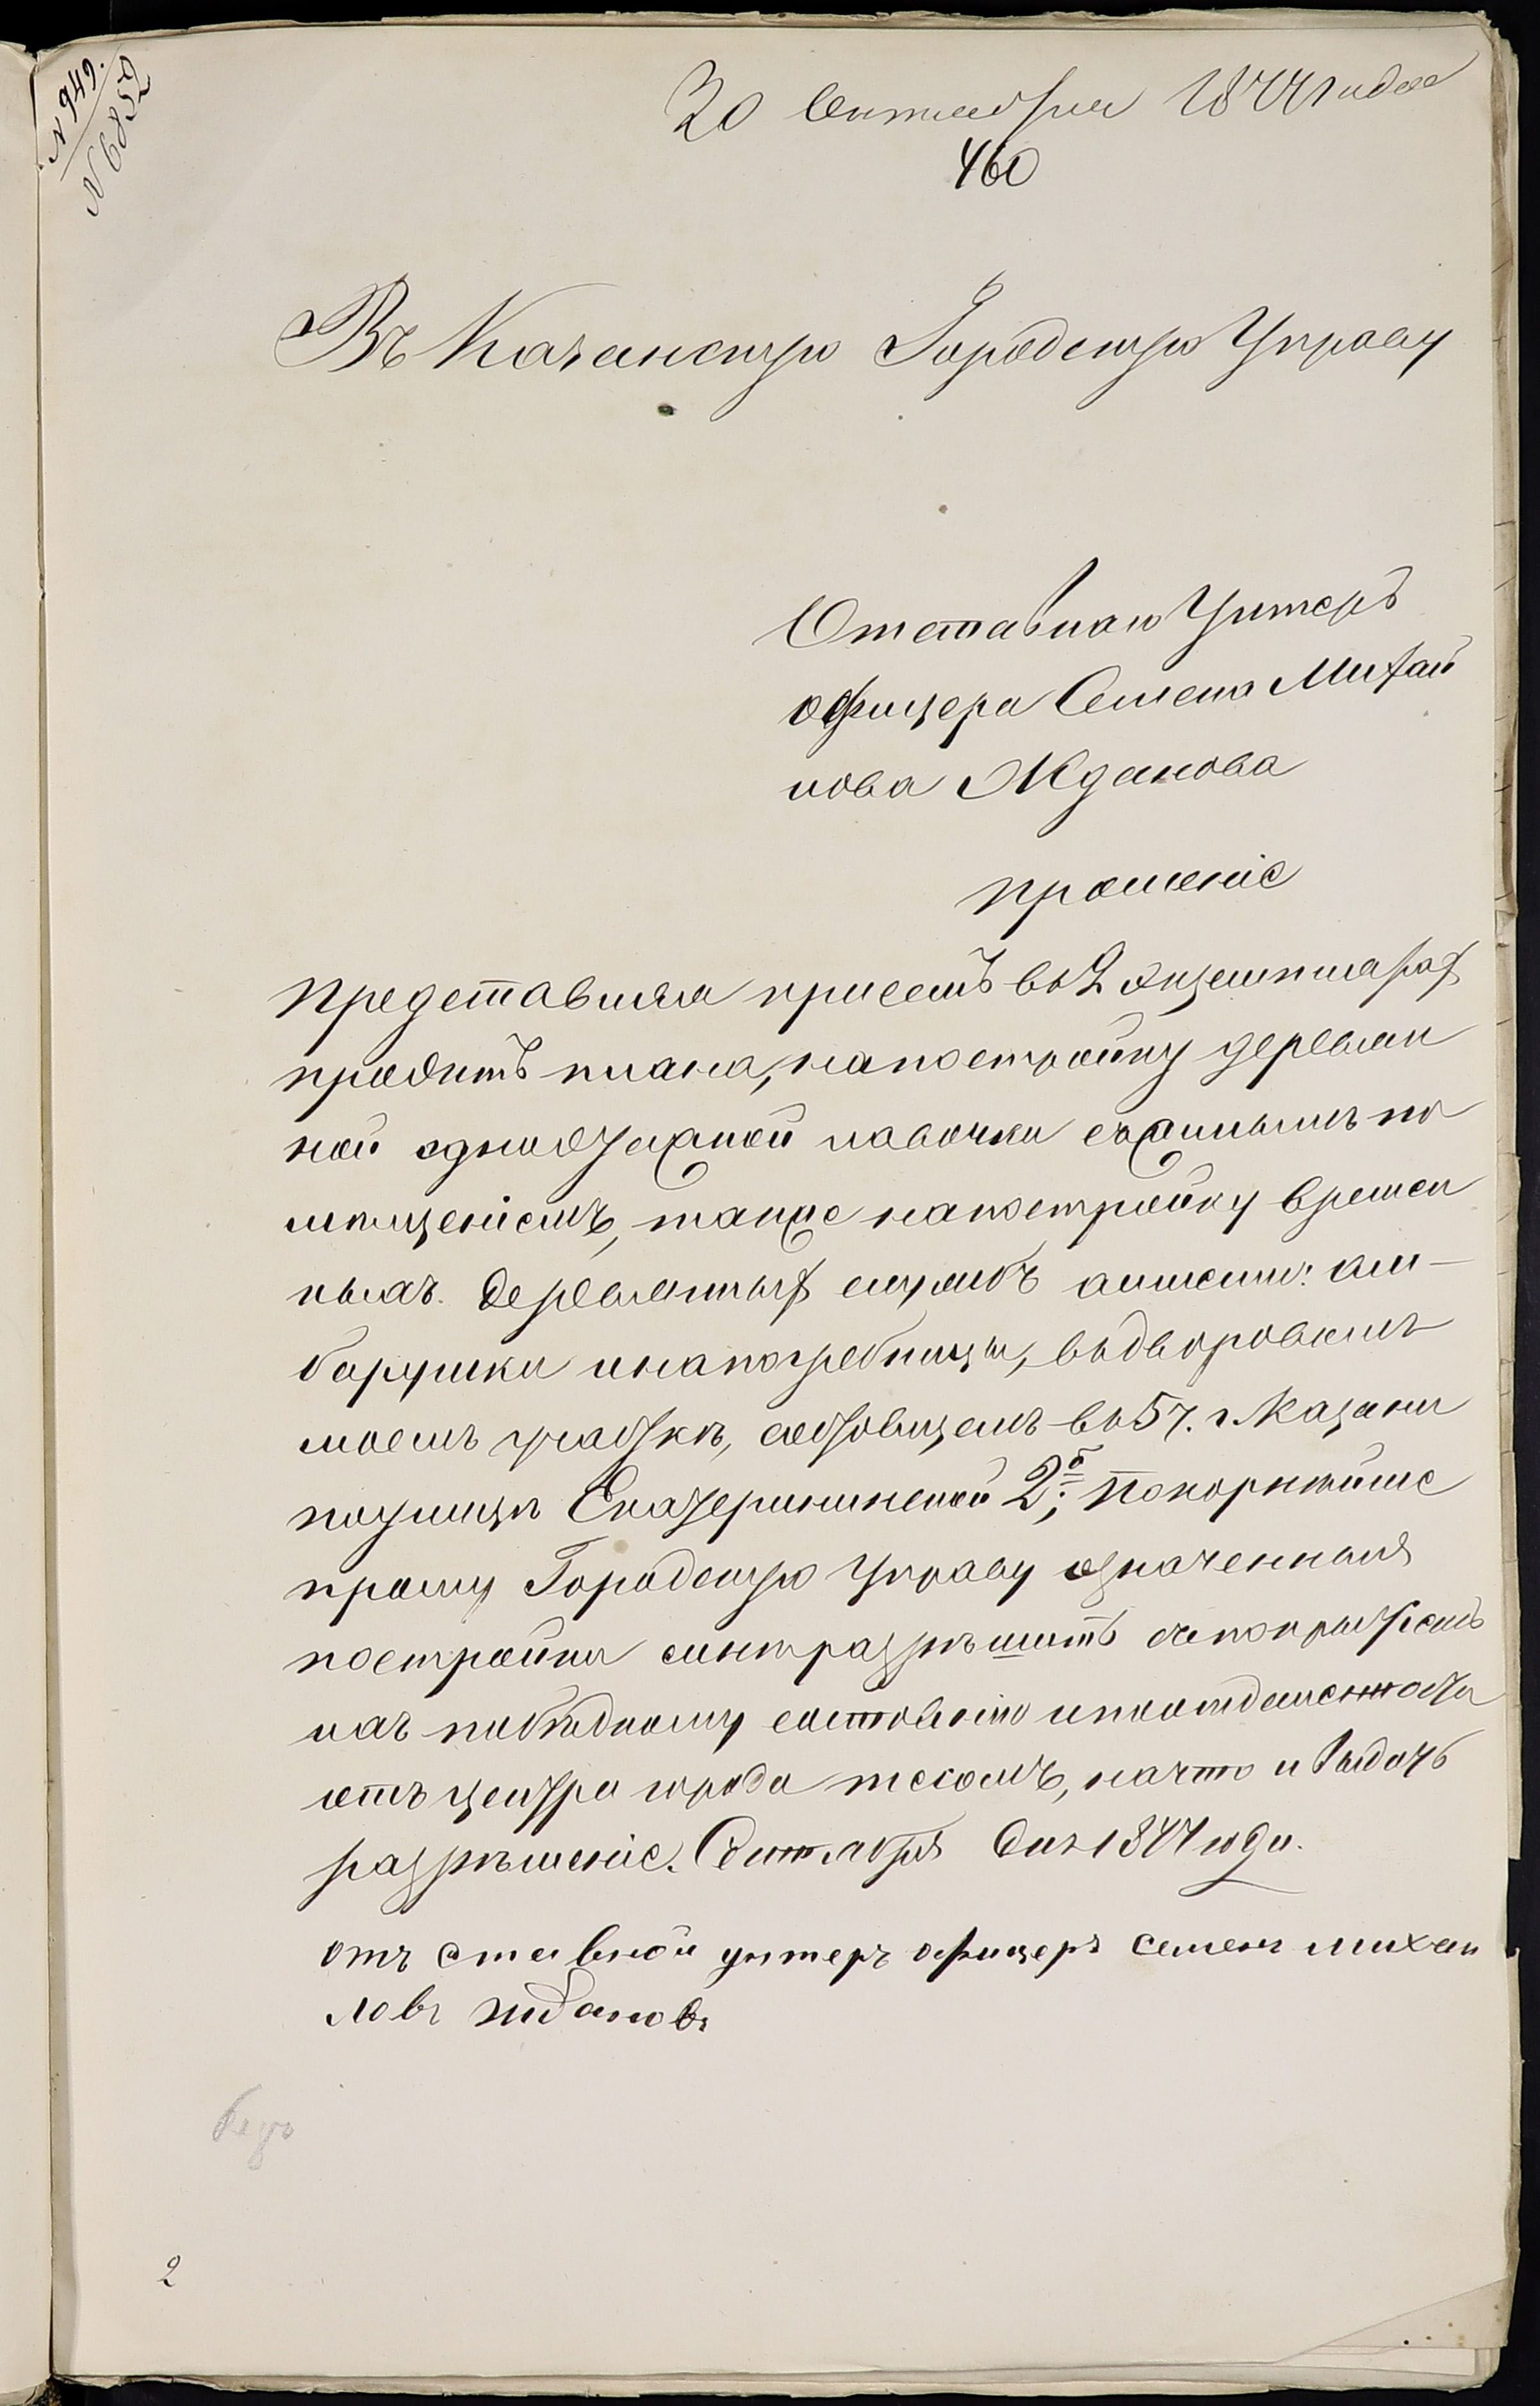 N 949.
N 6852
20 Сентября 1877 года
460
Въ Казанскую Городскую Управу
Отставнаго Унтеръ
офицера Семена Михай
лова Жданова
прошеніе
Представляя присемъ во 2 экземплярах
проэктъ плана, на постройку деревян
ной одноэтажной лавочки съ жилымъ по
мѣщеніемъ, также на постройку времен
ныхъ деревянных службъ а именно: ам-
барушки и напогребницы, въ дворовомъ
моемъ участкѣ, состоящемъ во 5 ч. г. Казани
по улицѣ Екатерининской 2й, покорнѣйше
прошу Городскую Управу означенныя
постройки мнѣ разрѣшить съ покрытіемъ
ихъ по бѣдному состоянію и по отдаленности
отъ центра города тесомъ, на что и выдать
разрѣшеніе. Сентября дня 1877 года.
отъ ставной унтеръ офицеръ семенъ михаи
ловъ ждановъ
2